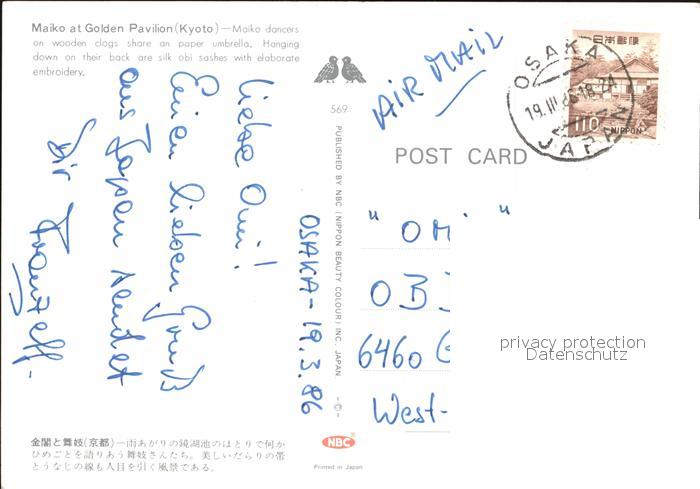 Maiko at Golden Pavilion (Kyoto) — Maiko dancers
on wooden clogs share an paper umbrella. Hanging
down on their back are silk obi sashes with elaborate
embroidery.
569
PUBLISHED BY NBC (NIPPON BEAUTY COLOUR) INC. JAPAN
-©-
AIR MAIL
OSAKA
19.III.86.18-24
JAPAN
日本郵便
110 NIPPON
POST CARD
OSAKA - 19.3.86
Liebe Omi!
Einen lieben Gruß
aus Japan sendet
Dir
" OMI "
OB
6460 G
West-
privacy protection
Datenschutz
金閣と舞妓(京都)—雨あがりの鏡湖池のほとりで何か
ひめごとを語りあう舞妓さんたち。美しいだらりの帯
とうなじの線も人目を引く風景である。
NBC®
Printed in Japan